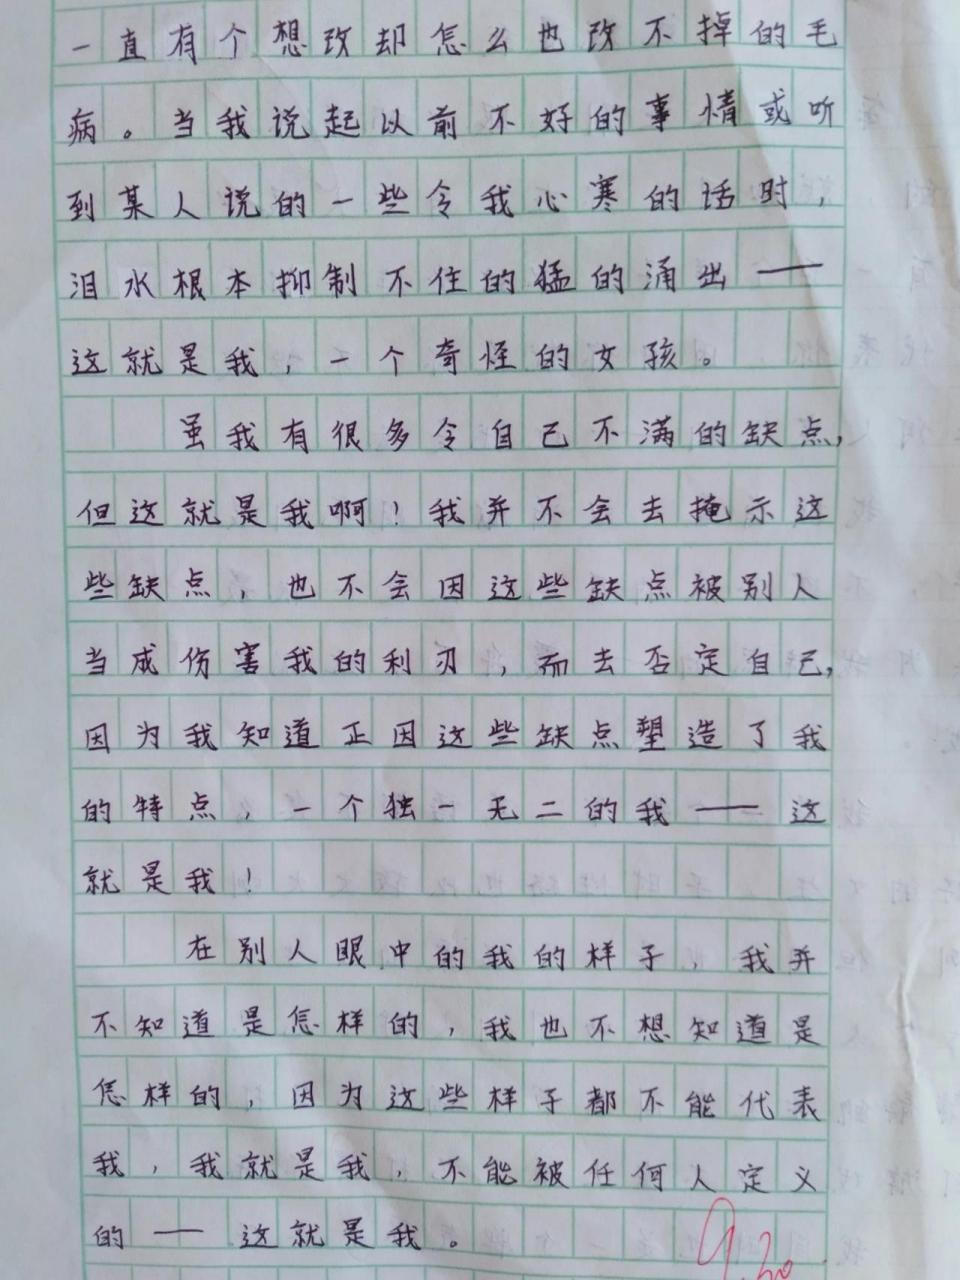 一直有个想改却怎么也改不掉的毛
病。当我说起以前不好的事情或听
到某人说的一些令我心寒的话时，
泪水根本抑制不住的猛的涌出——
这就是我，一个奇怪的女孩。
虽我有很多令自己不满的缺点，
但这就是我啊！我并不会去掩示这
些缺点，也不会因这些缺点被别人
当成伤害我的利刃，而去否定自己，
因为我知道正因这些缺点塑造了我
的特点，一个独一无二的我——这
就是我！
在别人眼中的我的样子，我并
不知道是怎样的，我也不想知道是
怎样的，因为这些样子都不能代表
我，我就是我，不能被任何人定义
的——这就是我。
9.20